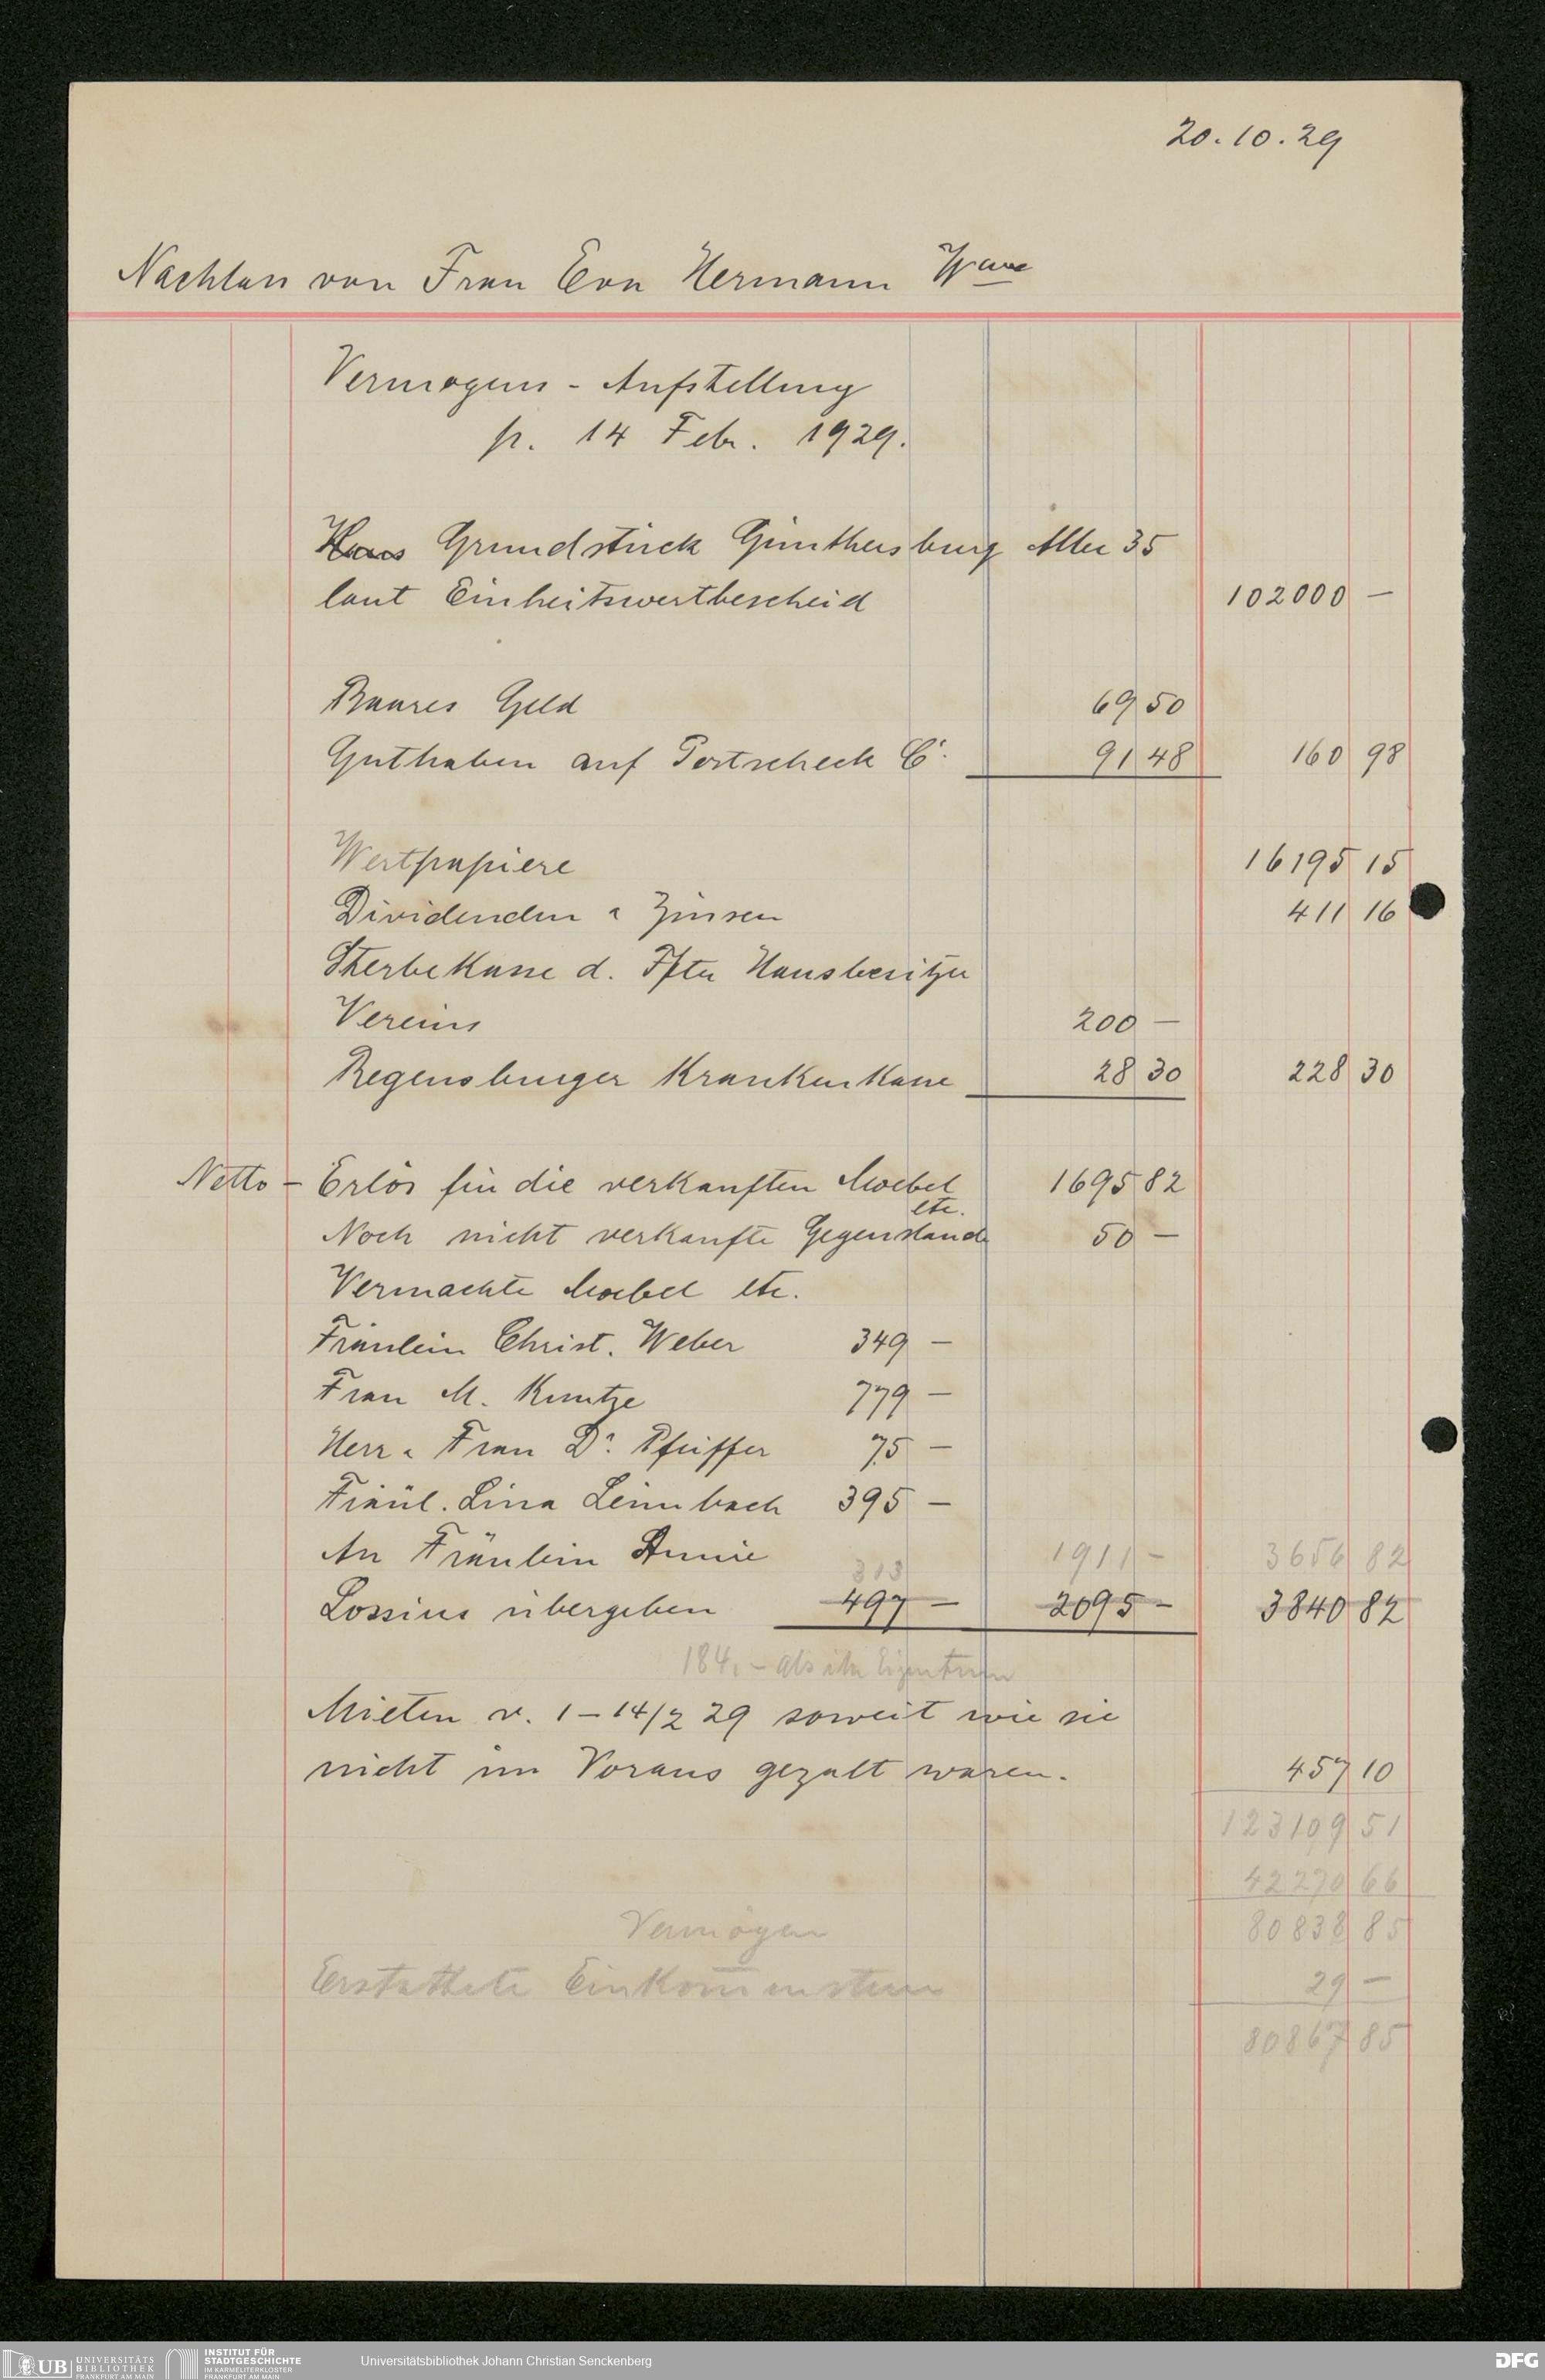 20.10.29
Nachlass von Frau Eva Hermann Wwe
Vermogens - Aufstellung
p. 14 Febr. 1929.
Haus Grundstück Günthersburg Allee 35
laut Einheitswertbescheid 102000 —
Baares Geld 69 50
Guthaben auf Postscheck Co. 91 48 160 98
Wertpapiere 16195 15
Dividenden & Zinsen 411 16
Sterbekasse d. Ffter Hausbesitzer
Vereins 200 —
Regensburger Krankenkasse 28 30 228 30
Netto - Erlös für die verkauften Moebel 1695 82
etc.
Noch nicht verkaufte Gegenstande 50 —
Vermachte Moebel etc.
Fräulein Christ. Weber 349 —
Frau M. Kuntze 779 —
Herr & Frau Dr. Pfeiffer 75 —
Fräul. Lina Leimbach 395 —
An Fräulein Annie 313 1911 — 3656 82
Lossius übergeben 497 — 2095 — 3840 82
184.- als ihr Eigentum
Mieten v. 1 - 14/2 29 soweit wie sie
nicht im Voraus gezalt waren. 457 10
123109 51
42270 66
Vermögen 80838 85
Erstattete Einkommensteuer 29 —
80867 85
UB UNIVERSITÄTS
BIBLIOTHEK
FRANKFURT AM MAIN
INSTITUT FÜR
STADTGESCHICHTE
IM KARMELITERKLOSTER
FRANKFURT AM MAIN
Universitätsbibliothek Johann Christian Senckenberg
DFG